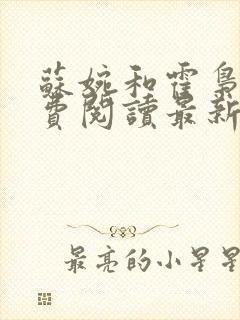 蘇婉和霍梟
費閱讀最新
最亮的小星星